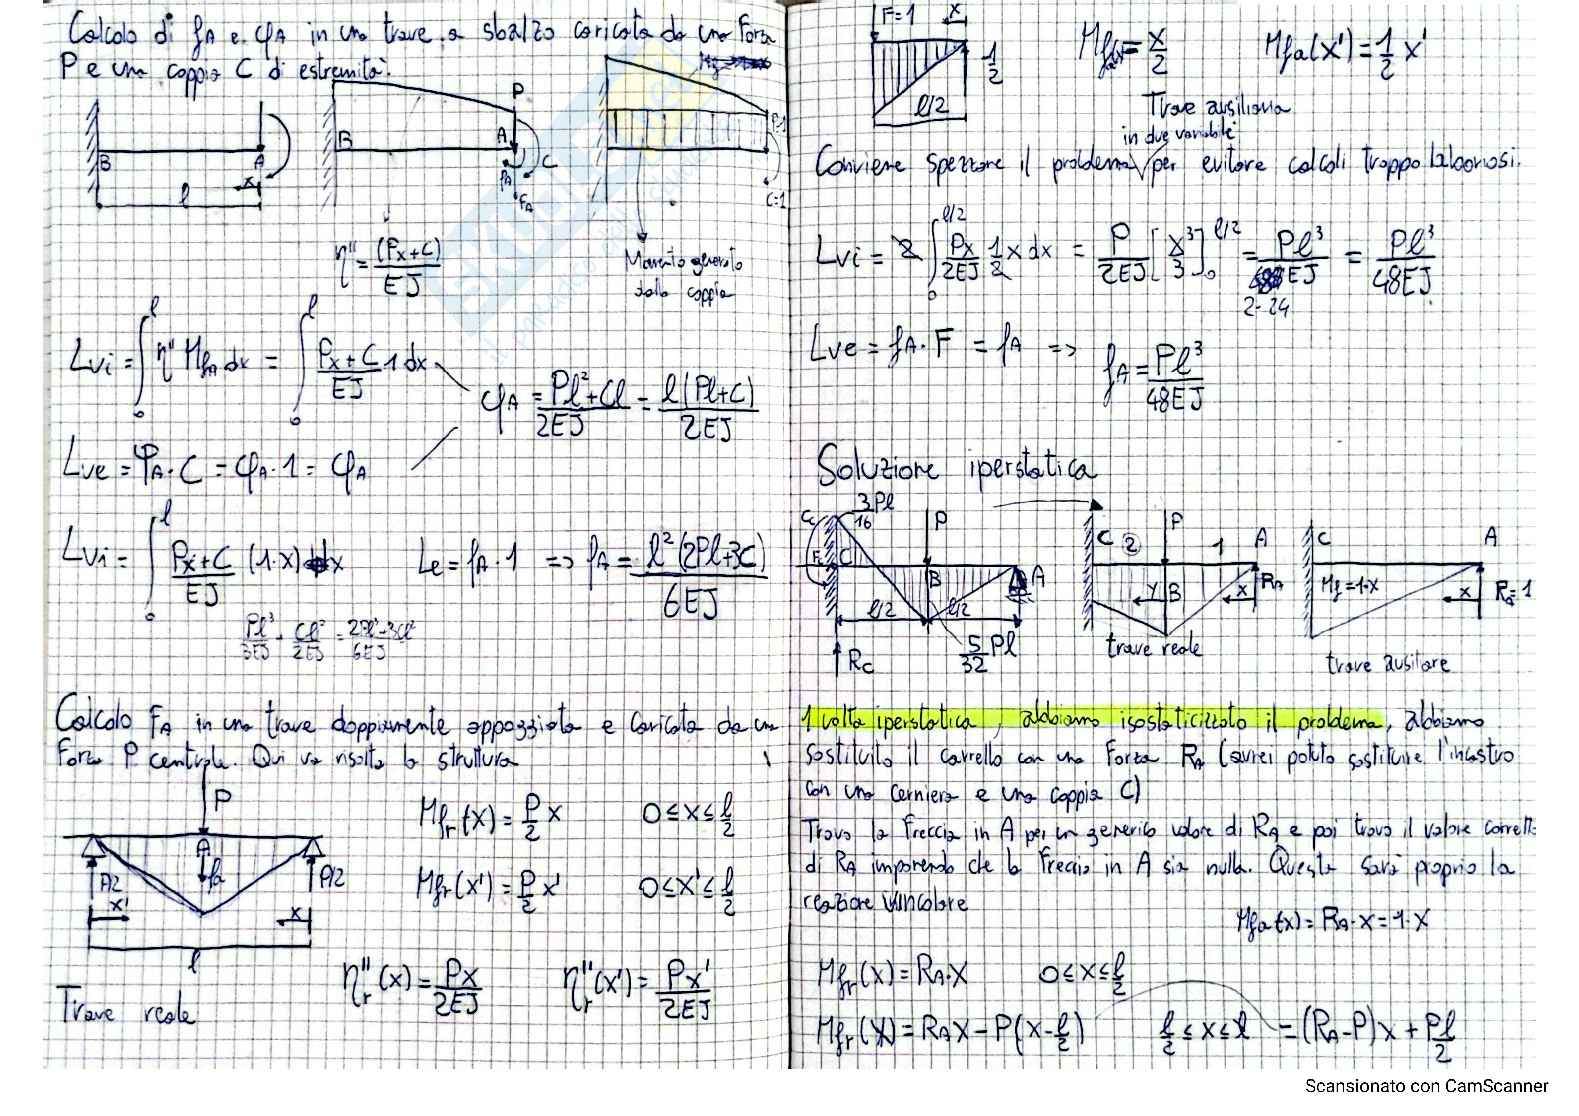 Calcolo di fA e φA in una trave a sbalzo caricata da una Forza
P e una coppia C di estremità.
B A x l
B A P C φA fA
P=1 C=1
η'' = (Px+C)/EJ
Momento generato
dalla coppia
Lvi = ∫₀ˡ η'' MfA dx = ∫₀ˡ (Px+C)/EJ 1 dx
φA = (Pl²+Cl)/2EJ = l(Pl+C)/2EJ
Lve = φA · C = φA · 1 = φA
Lvi = ∫₀ˡ (Px+C)/EJ (1·x) dx Le = fA · 1 => fA = l²(2Pl+3C)/6EJ
Pl³/3EJ + Cl²/2EJ = 2Pl³+3Cl²/6EJ
Calcolo FA in una trave doppiamente appoggiata e caricata da una
Forza P centrale. Qui va risolta la struttura
P
A fA
P/2 P/2
x' x
l
Trave reale
Mfr(x) = P/2 x 0 ≤ x ≤ l/2
Mfr(x') = P/2 x' 0 ≤ x' ≤ l/2
ηr''(x) = Px/2EJ ηr''(x') = Px'/2EJ
F=1 x
1/2
l/2
Mfa(x) = x/2 Mfa(x') = 1/2 x'
Trave ausiliaria
in due variabile
Conviene spezzare il problema per evitare calcoli troppo laboriosi.
Lvi = 2 ∫₀^(l/2) Px/2EJ 1/2 x dx = P/2EJ [x³/3]₀^(l/2) = Pl³/EJ = Pl³/48EJ
2·24
Lve = fA · F = fA => fA = Pl³/48EJ
Soluzione iperstatica
3/16 Pl P
C B A
l/2 l/2
Rc 5/32 Pl
C 2 P 1 A
y B x RA
trave reale
C A
Mf=1·x x RA=1
trave ausiliare
1 volta iperstatica, abbiamo isostaticizzato il problema, abbiamo
sostituito il carrello con una Forza RA (avrei potuto sostituire l'incastro
con una cerniera e una coppia C)
Trovo la Freccia in A per un generico valore di RA e poi trovo il valore corretto
di RA imponendo che la Freccia in A sia nulla. Questa sarà proprio la
reazione vincolare
Mfa(x) = RA·x = 1·x
Mfr(x) = RA·x 0 ≤ x ≤ l/2
Mfr(x) = RAx - P(x - l/2) l/2 ≤ x ≤ l = (RA-P)x + Pl/2
Scansionato con CamScanner